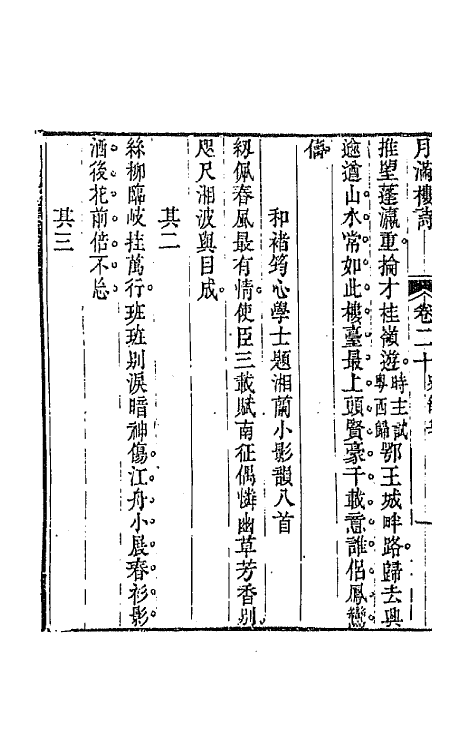 月滿樓詩 卷二十
推望蓬瀛重掄才桂嶺遊時主試粵西歸鄂王城畔路歸去興
逾遒山水常如此樓臺最上頭賢豪千載意誰侶鳳鸞
儔
和褚筠心學士題湘蘭小影韻八首
紉佩春風最有情使臣三載賦南征偶憐幽草芳香別
咫尺湘波與目成
其二
絲柳臨岐挂萬行班班别淚暗神傷江舟小展春衫影
酒後花前倍不忘
其三